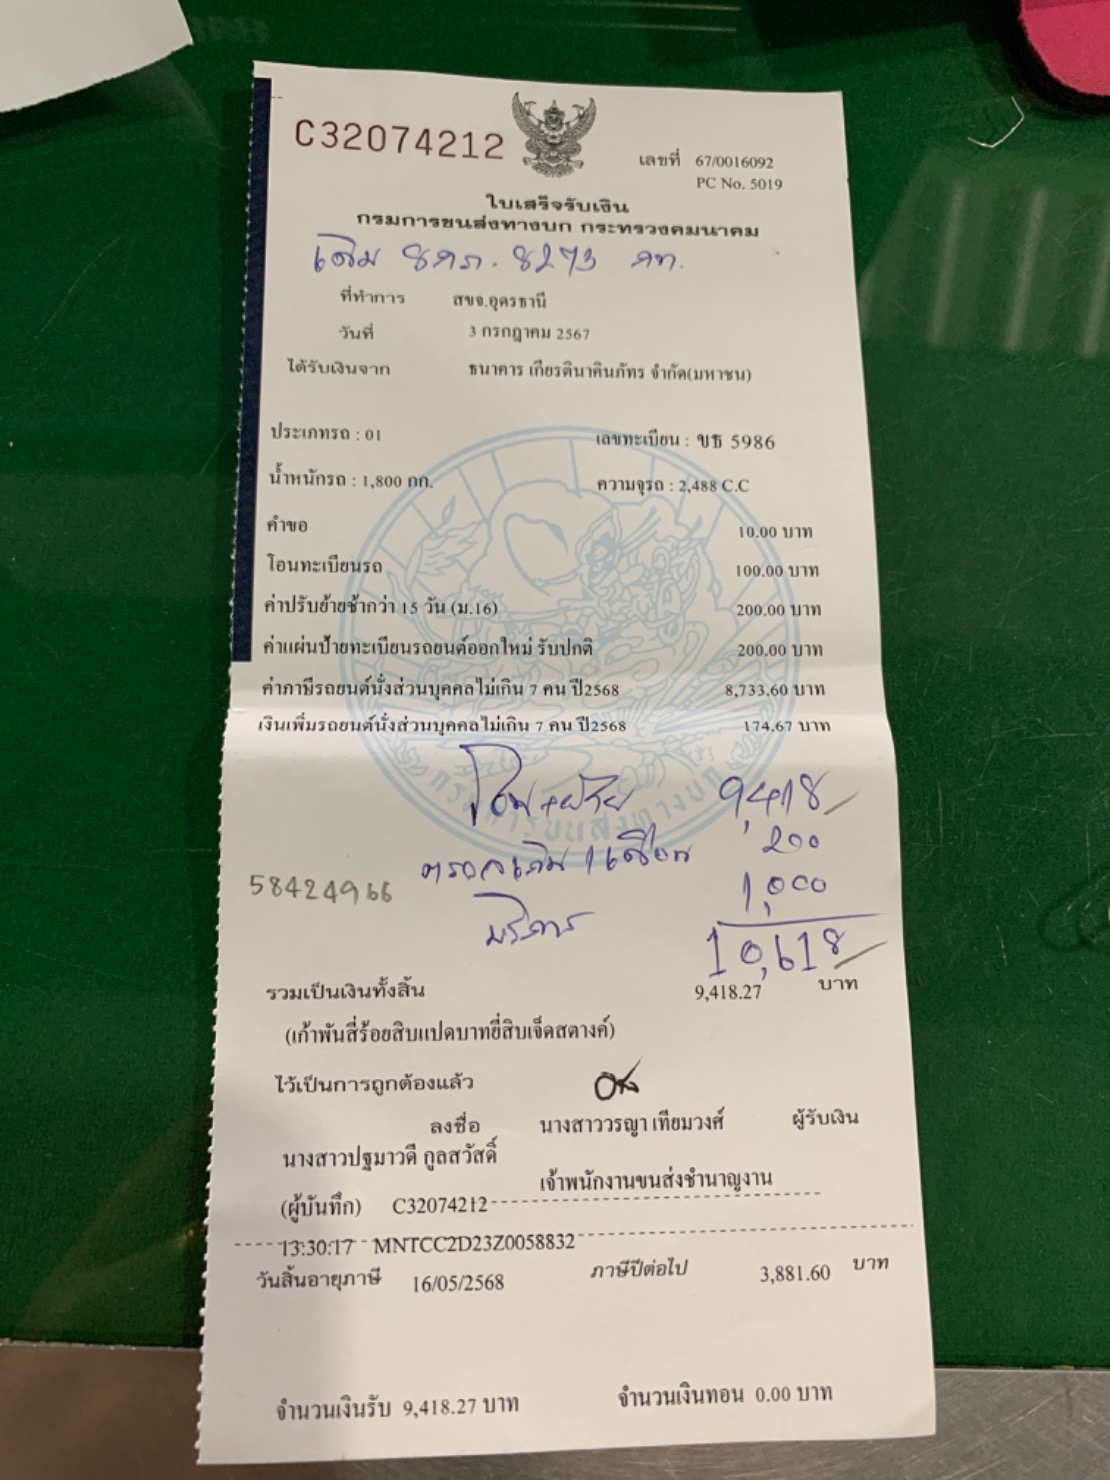 C32074212
เลขที่ 67/0016092
PC No. 5019
ใบเสร็จรับเงิน
กรมการขนส่งทางบก กระทรวงคมนาคม
เดิม 8กภ. 8273 กท.
ที่ทำการ สขจ.อุดรธานี
วันที่ 3 กรกฎาคม 2567
ได้รับเงินจาก ธนาคาร เกียรตินาคินภัทร จำกัด(มหาชน)
ประเภทรถ : 01 เลขทะเบียน : ขธ 5986
น้ำหนักรถ : 1,800 กก. ความจุรถ : 2,488 C.C
คำขอ 10.00 บาท
โอนทะเบียนรถ 100.00 บาท
ค่าปรับย้ายช้ากว่า 15 วัน (ม.16) 200.00 บาท
ค่าแผ่นป้ายทะเบียนรถยนต์ออกใหม่ รับปกติ 200.00 บาท
ค่าภาษีรถยนต์นั่งส่วนบุคคลไม่เกิน 7 คน ปี2568 8,733.60 บาท
เงินเพิ่มรถยนต์นั่งส่วนบุคคลไม่เกิน 7 คน ปี2568 174.67 บาท
กรมการขนส่งทางบก
โอน+ย้าย 9,418
200
58424966
บริการ 1,000
10,618
รวมเป็นเงินทั้งสิ้น 9,418.27 บาท
(เก้าพันสี่ร้อยสิบแปดบาทยี่สิบเจ็ดสตางค์)
ไว้เป็นการถูกต้องแล้ว
ลงชื่อ นางสาววรญา เทียมวงศ์ ผู้รับเงิน
นางสาวปฐมาวดี กูลสวัสดิ์
เจ้าพนักงานขนส่งชำนาญงาน
(ผู้บันทึก) C32074212
13:30:17 MNTCC2D23Z0058832
วันสิ้นอายุภาษี 16/05/2568 ภาษีปีต่อไป 3,881.60 บาท
จำนวนเงินรับ 9,418.27 บาท จำนวนเงินทอน 0.00 บาท